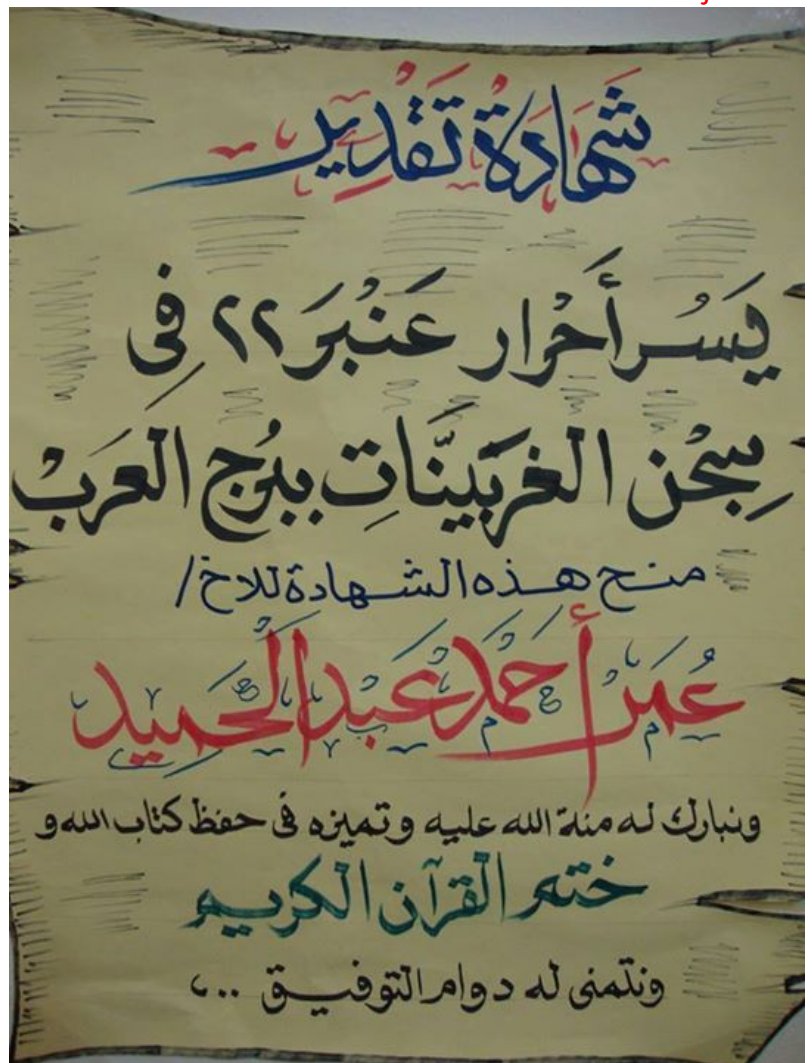 شهادة تقدير
يَسُر أَحْرار عَنْبَر ٢٢ فِى
سِجْن الغَربَينَّاتِ ببُرج العَرَبْ
منح هذه الشهادة للاخ /
عُمَر أحمَد عَبْد الحَميد
ونبارك له منة الله عليه وتميزه فى حفظ كتاب الله و
ختم القرآن الكريم
ونتمنى له دوام التوفيق ..،